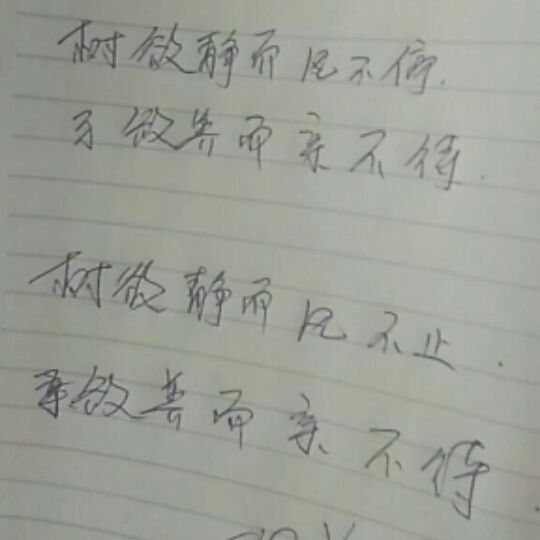 树欲静而风不停.
子欲养而亲不待.
树欲静而风不止.
子欲养而亲不待.